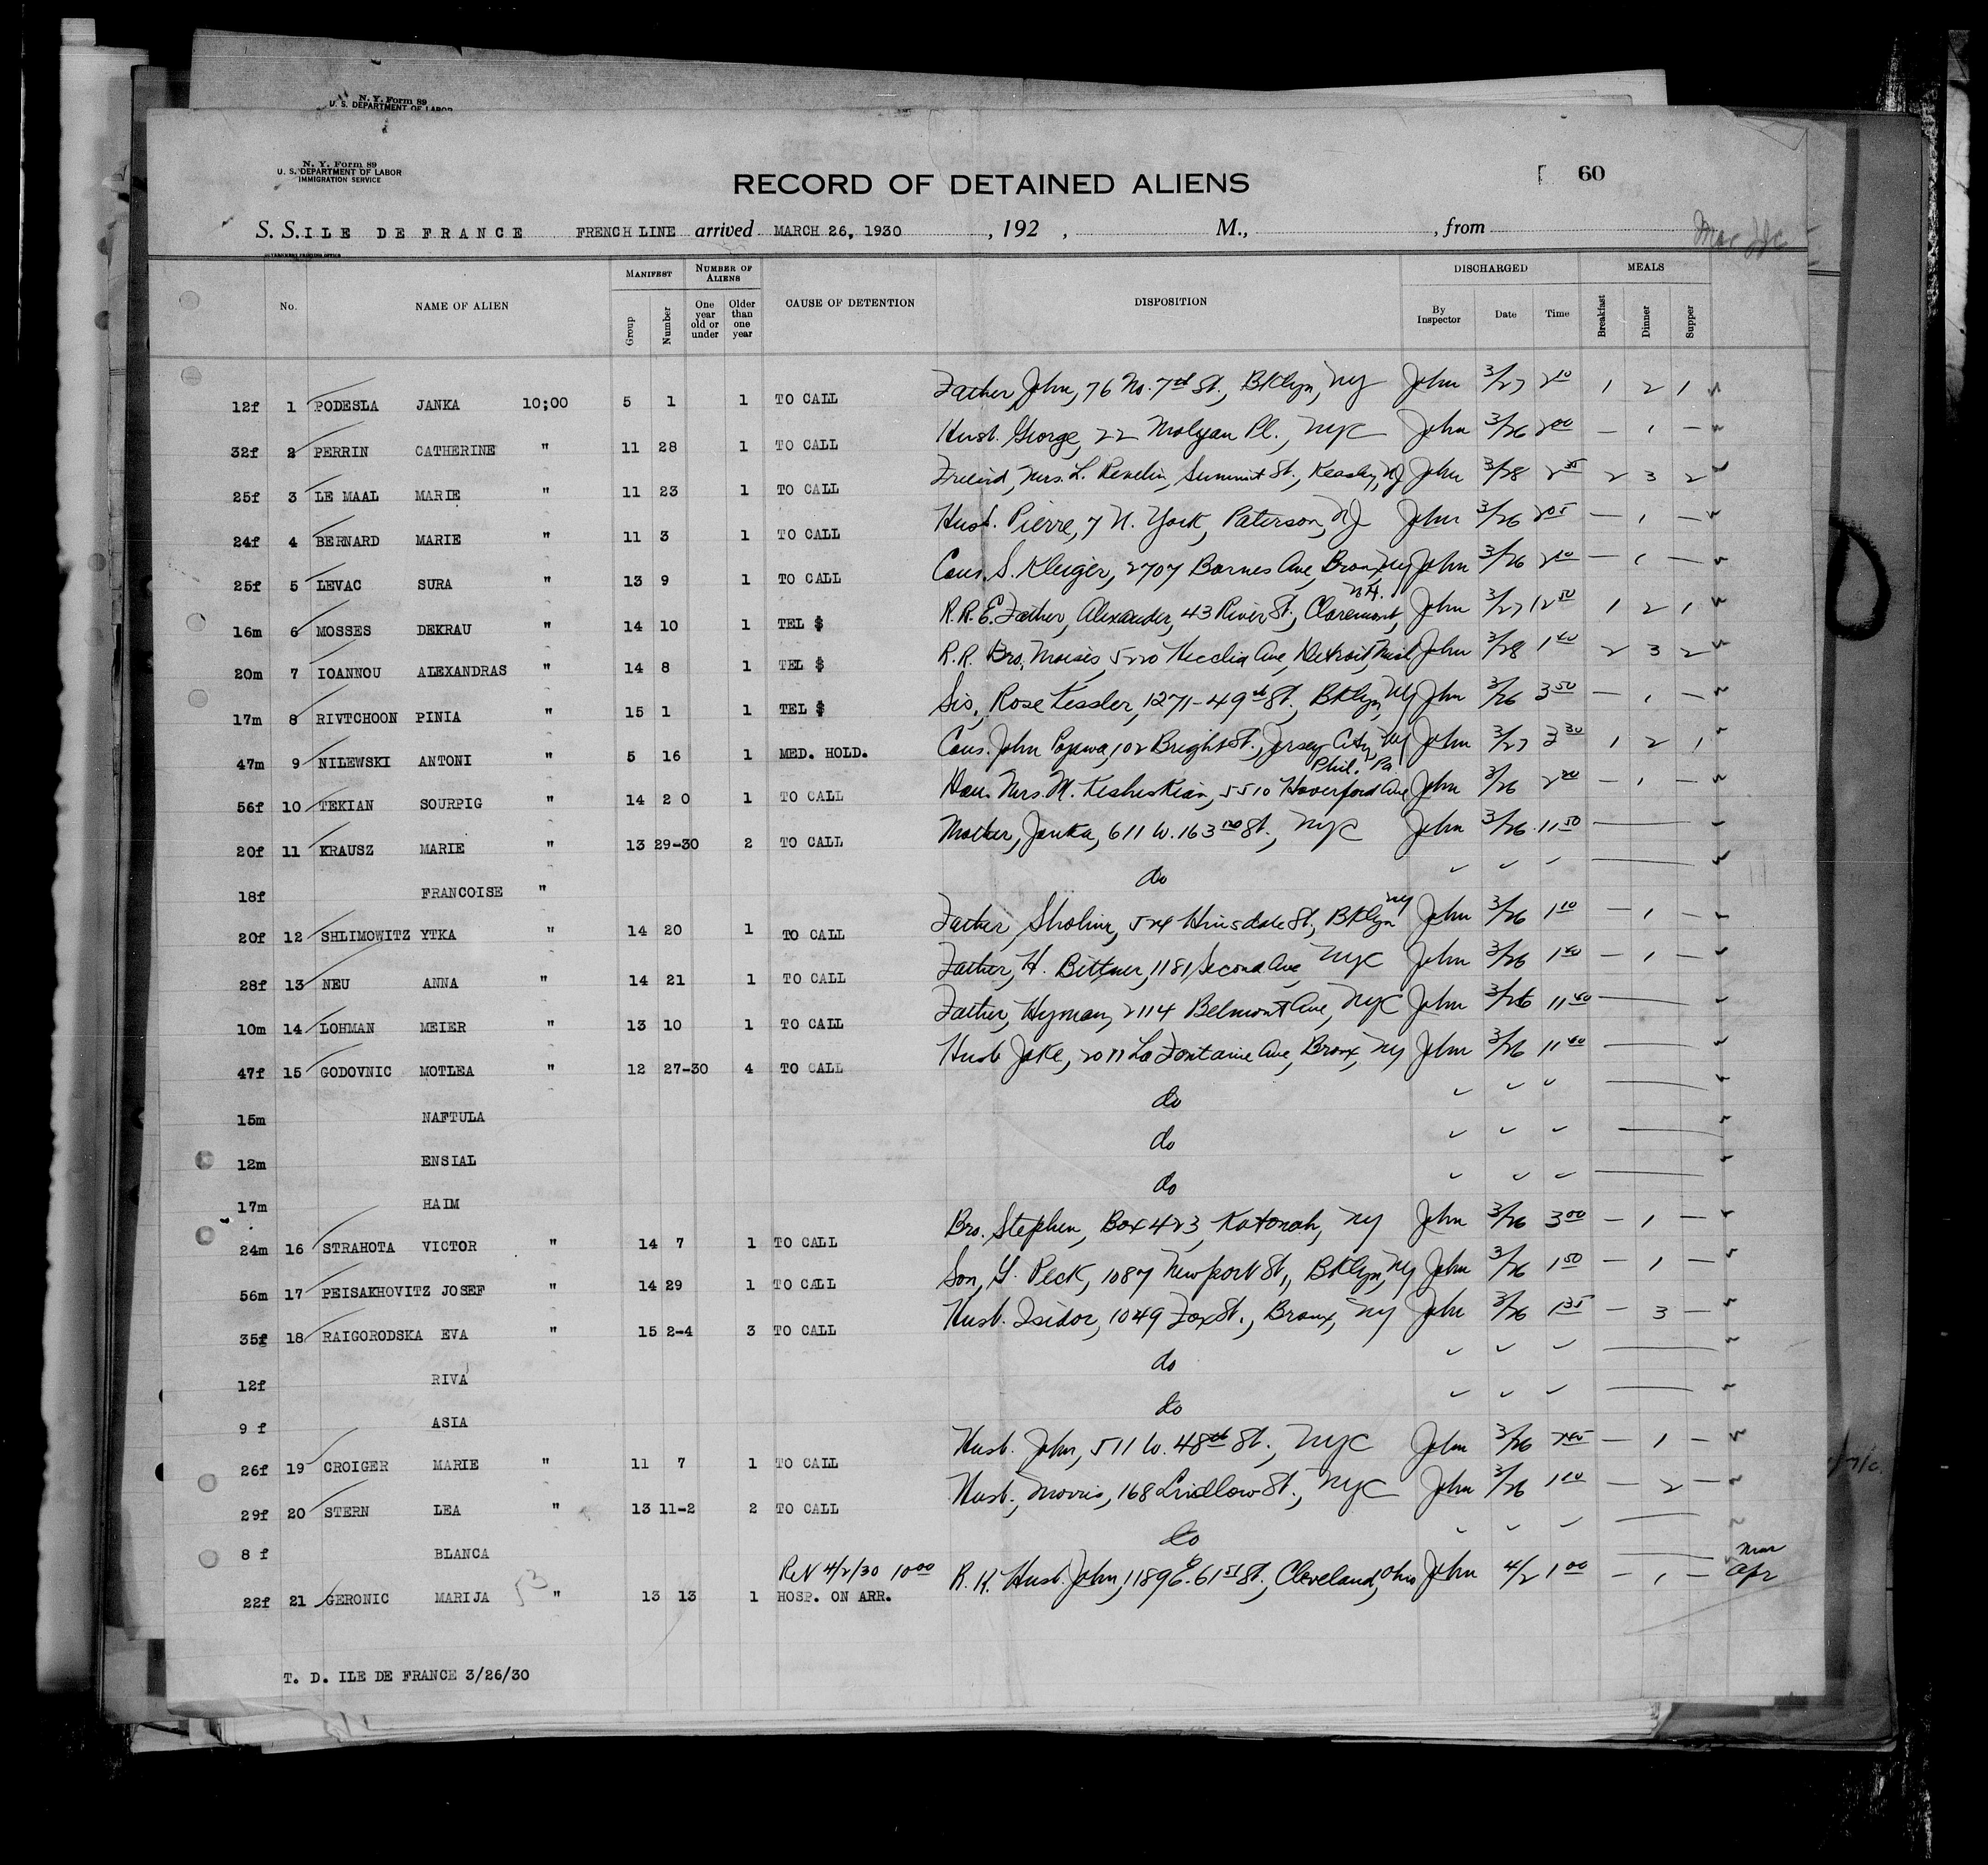 N. Y. Form 89
U. S. DEPARTMENT OF LABOR
N. Y. Form 89
U. S. DEPARTMENT OF LABOR
IMMIGRATION SERVICE
RECORD OF DETAINED ALIENS
60
S. S. ILE DE FRANCE FRENCH LINE arrived MARCH 26, 1930 , 192 , M., , from
No. NAME OF ALIEN MANIFEST Group Number NUMBER OF ALIENS One year old or under Older than one year CAUSE OF DETENTION DISPOSITION DISCHARGED By Inspector Date Time MEALS Breakfast Dinner Supper
12f 1 PODESLA JANKA 10;00 5 1 1 TO CALL Father, John, 76 No. 7th St., Bklyn, NY John 3/27 2 10 1 2 1
32f 2 PERRIN CATHERINE " 11 28 1 TO CALL Husb. George, 22 Pl., NYC John 3/26 2 00 — 1 —
25f 3 LE MAAL MARIE " 11 23 1 TO CALL Friend, Mrs. L. Revelin, Summit St., Keasbey, NJ John 3/28 2 35 2 3 2
24f 4 BERNARD MARIE " 11 3 1 TO CALL Husb. Pierre, 7 N. York, Paterson, NJ John 3/26 2 05 — 1 —
25f 5 LEVAC SURA " 13 9 1 TO CALL Cous. S. Kleiger, 2707 Barnes Ave, Bronx, NY John 3/26 2 10 — 1 —
16m 6 MOSSES DEKRAU " 14 10 1 TEL $ R.R.E. Father, Alexander, 43 River St., Claremont, N.H. John 3/27 12 50 1 2 1
20m 7 IOANNOU ALEXANDRAS " 14 8 1 TEL $ R.R. Bro. Moisis, 5220 Ave, Detroit, Mich John 3/28 1 40 2 3 2
17m 8 RIVTCHOON PINIA " 15 1 1 TEL $ Sis, Rose Kessler, 1271-49th St., Bklyn, NY John 3/26 3 50 — 1 —
47m 9 NILEWSKI ANTONI " 5 16 1 MED. HOLD. Cous. John 102 Bright St., Jersey City, NJ John 3/27 3 30 1 2 1
56f 10 TEKIAN SOURPIG " 14 2 0 1 TO CALL Mrs. M. Keshishian, 5510 Haverford Ave Phil. Pa. John 3/26 2 20 — 1 —
20f 11 KRAUSZ MARIE " 13 29-30 2 TO CALL Mother, Janka, 611 W. 163rd St., NYC John 3/26 11 50 —
18f FRANCOISE " do
20f 12 SHLIMOWITZ YTKA " 14 20 1 TO CALL Father, Sholim, 524 Hinsdale St., Bklyn NY John 3/26 1 10 — 1 —
28f 13 NEU ANNA " 14 21 1 TO CALL Father, H. Bittner, 1181 Second Ave, NYC John 3/26 1 40 — 1 —
10m 14 LOHMAN MEIER " 13 10 1 TO CALL Father, Hyman, 2114 Belmont Ave, NYC John 3/26 11 40 —
47f 15 GODOVNIC MOTLEA " 12 27-30 4 TO CALL Husb Jake, 2077 La Fontaine Ave, Bronx, NY John 3/26 11 40 —
15m NAFTULA do
12m ENSIAL do
17m HAIM do
24m 16 STRAHOTA VICTOR " 14 7 1 TO CALL Bro. Stephen, Box 423, Katonah, NY John 3/26 3 00 — 1 —
56m 17 PEISAKHOVITZ JOSEF " 14 29 1 TO CALL Son, Y. Peck, 1087 Newport St., Bklyn, NY John 3/26 1 50 — 1 —
35f 18 RAIGORODSKA EVA " 15 2-4 3 TO CALL Husb. Isidor, 1049 Fox St., Bronx, NY John 3/26 1 35 — 3 —
12f RIVA do
9 f ASIA do
26f 19 CROIGER MARIE " 11 7 1 TO CALL Husb. John, 511 W. 48th St., NYC John 3/26 2 45 — 1 —
29f 20 STERN LEA " 13 11-2 2 TO CALL Husb., Morris, 168 Ludlow St., NYC John 3/26 1 10 — 2 —
8 f BLANCA do
22f 21 GERONIC MARIJA 53 " 13 13 1 Rel 4/2/30 10 00 HOSP. ON ARR. R.R. Husb. John, 1189 E. 61st St., Cleveland, Ohio John 4/2 1 00 — 1 — Mar Apr
T. D. ILE DE FRANCE 3/26/30